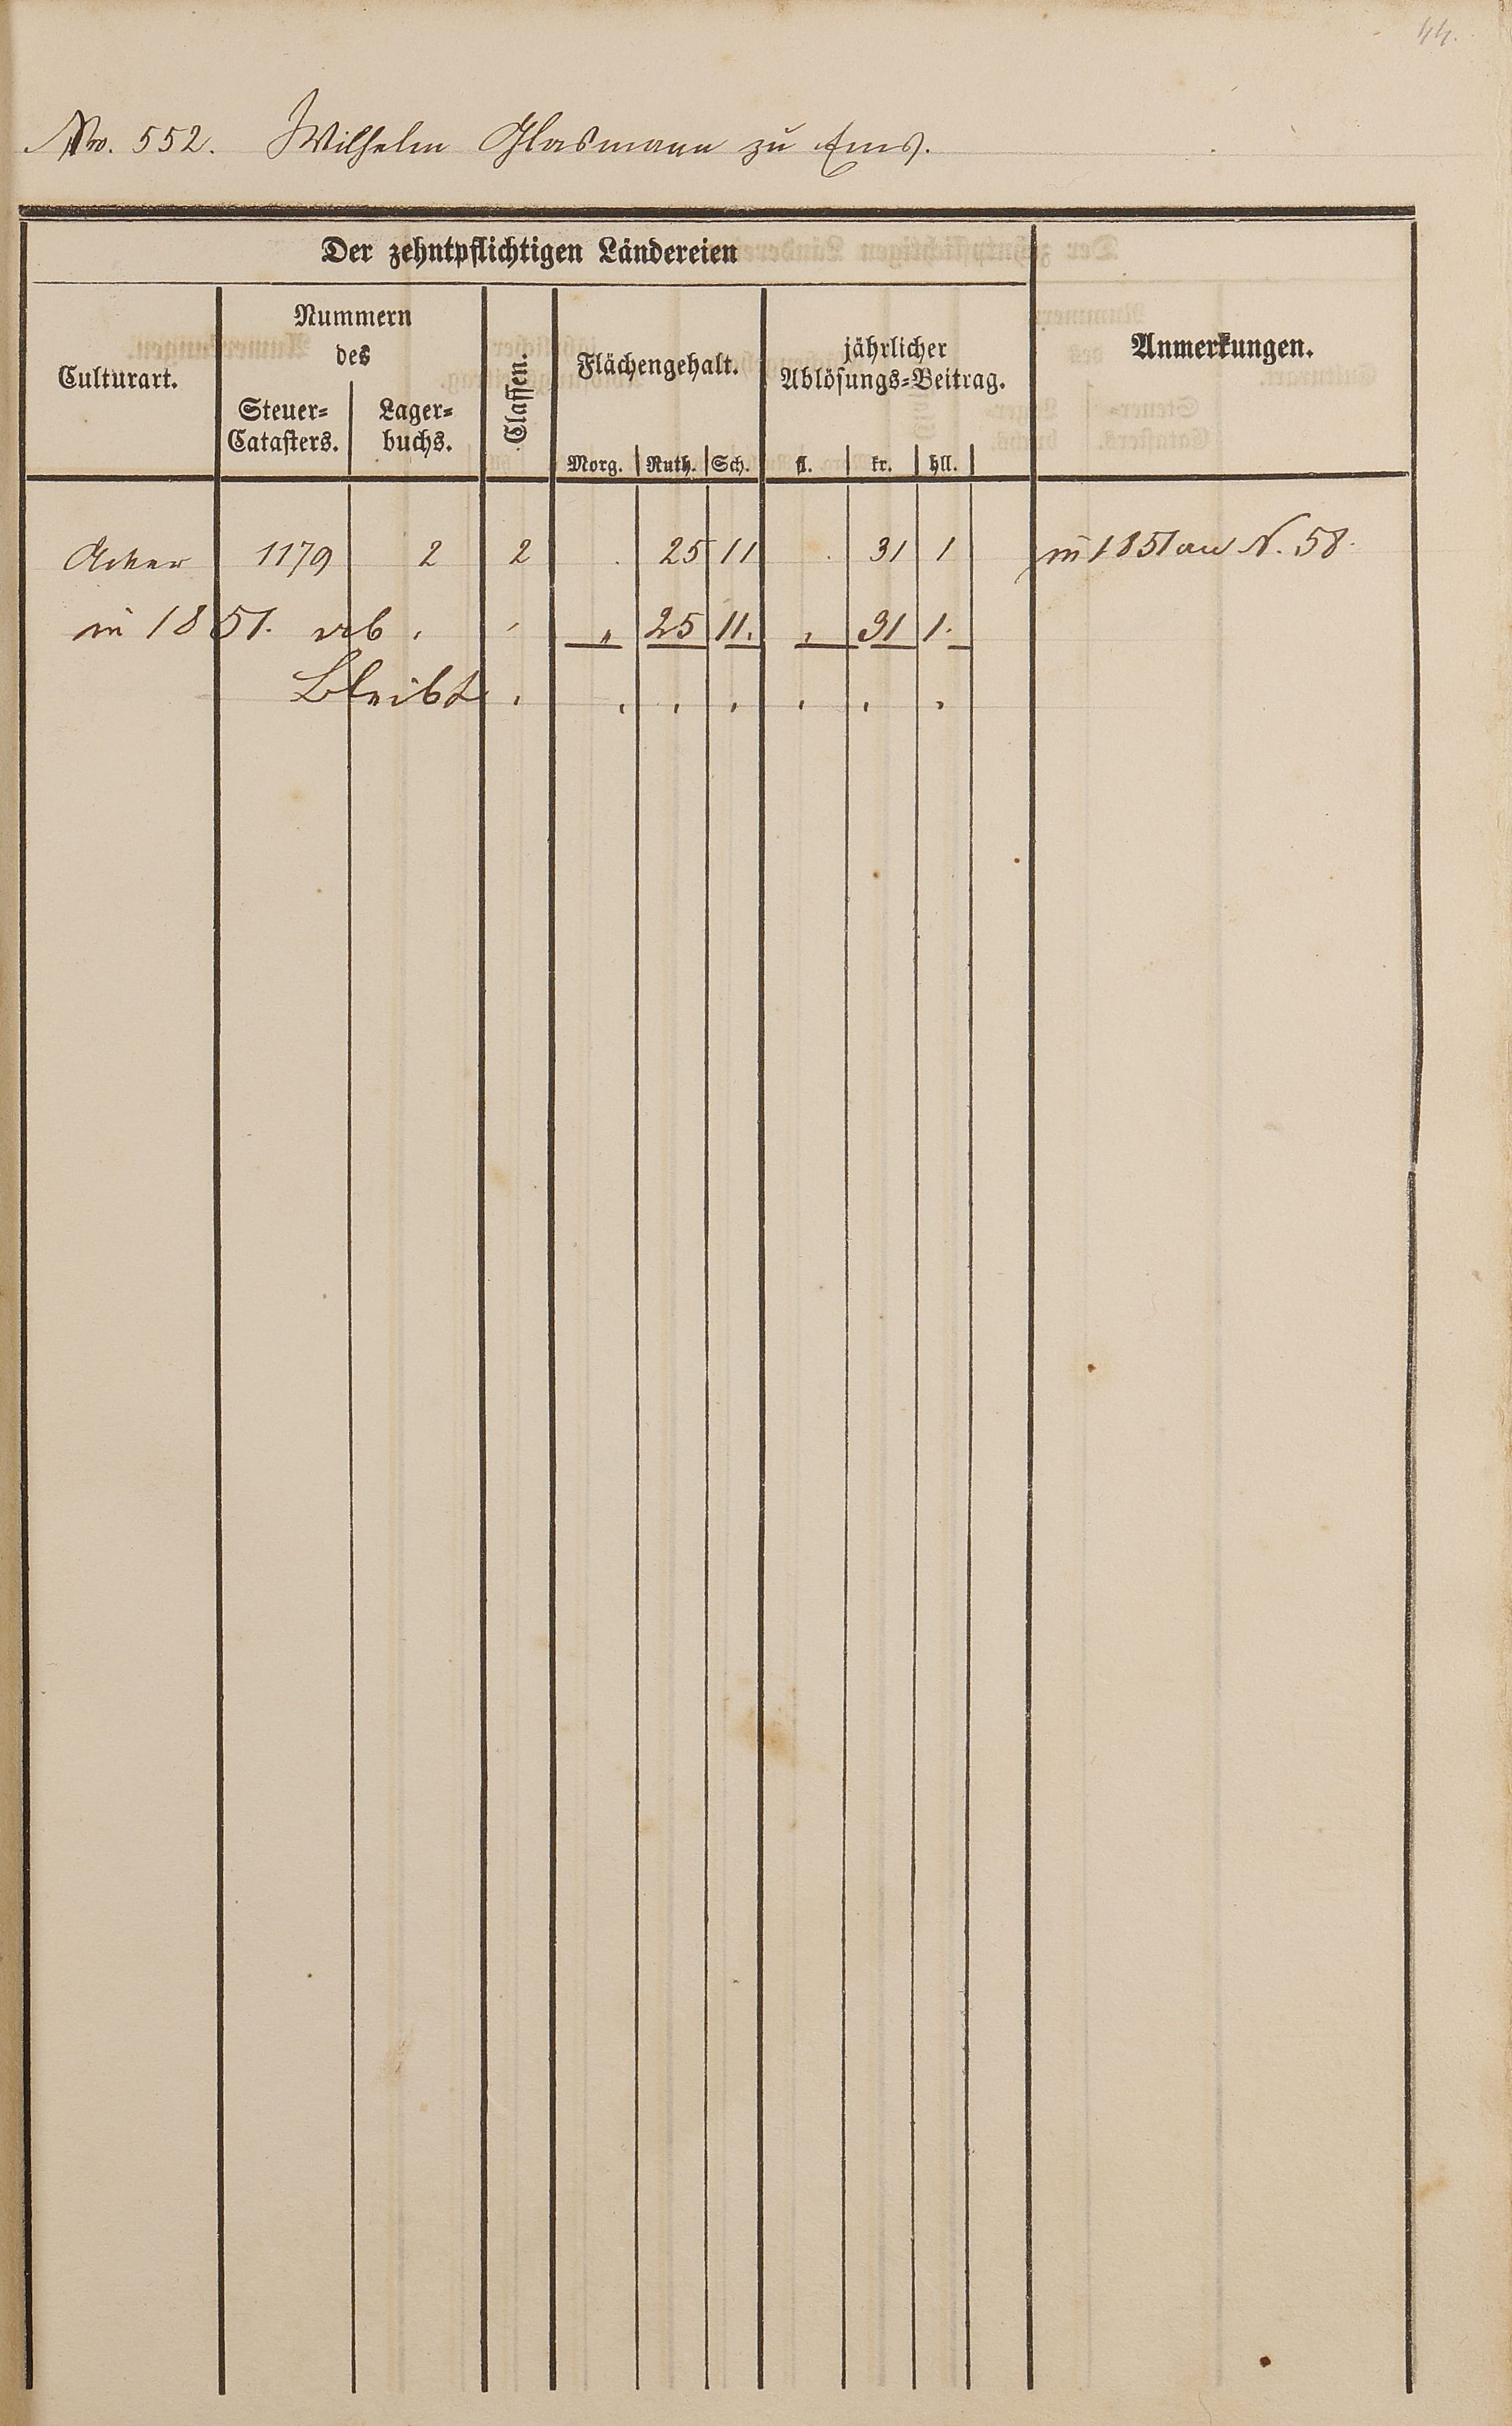 44.
No. 552. Wilhelm Glasmann zu Ems.
Der zehntpflichtigen Ländereien
Culturart.
Nummern
des
Steuer-
Catasters.
Lager-
buchs.
Classen.
Flächengehalt.
Morg. Ruth. Sch.
jährlicher
Ablösungs-Beitrag.
fl. kr. hll.
Anmerkungen.
Acker 1179 2 2 . 25 11 . 31 1 in 1851 an N. 58.
in 1851. ab " 25 11. " 31 1.
Bleibt